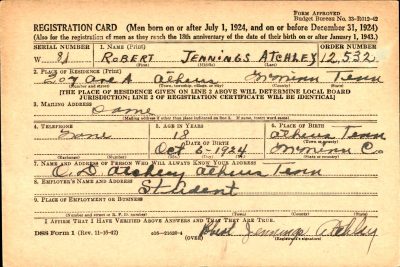 FORM APPROVED
Budget Bureau No. 33-R012-42
REGISTRATION CARD (Men born on or after July 1, 1924, and on or before December 31, 1924)
(Also for the registration of men as they reach the 18th anniversary of the date of their birth on or after January 1, 1943.)
SERIAL NUMBER 1. NAME (Print) ORDER NUMBER
W 81 ROBERT JENNINGS ATCHLEY 12,532
(First) (Middle) (Last)
2. PLACE OF RESIDENCE (Print)
207 Ave A Athens McMinn Tenn
(Number and street) (Town, township, village or city) (County) (State)
[THE PLACE OF RESIDENCE GIVEN ON LINE 2 ABOVE WILL DETERMINE LOCAL BOARD
JURISDICTION; LINE 2 OF REGISTRATION CERTIFICATE WILL BE IDENTICAL]
3. MAILING ADDRESS
Same
[Mailing address if other than place indicated on line 2. If same, insert word same]
4. TELEPHONE 5. AGE IN YEARS 6. PLACE OF BIRTH
18 Athens Tenn
DATE OF BIRTH (Town or county)
Oct 5-1924 McMinn Co
(Exchange) (Number) (Mo.) (Day) (Yr.) (State or country)
7. NAME AND ADDRESS OF PERSON WHO WILL ALWAYS KNOW YOUR ADDRESS
Atchley Athens Tenn
8. EMPLOYER'S NAME AND ADDRESS
Student
9. PLACE OF EMPLOYMENT OR BUSINESS
(Number and street or R. F. D. number) (Town) (County) (State)
I AFFIRM THAT I HAVE VERIFIED ABOVE ANSWERS AND THAT THEY ARE TRUE.
DSS Form 1 (Rev. 11-16-42) (OVER) Jennings Atchley
(Registrant's signature)